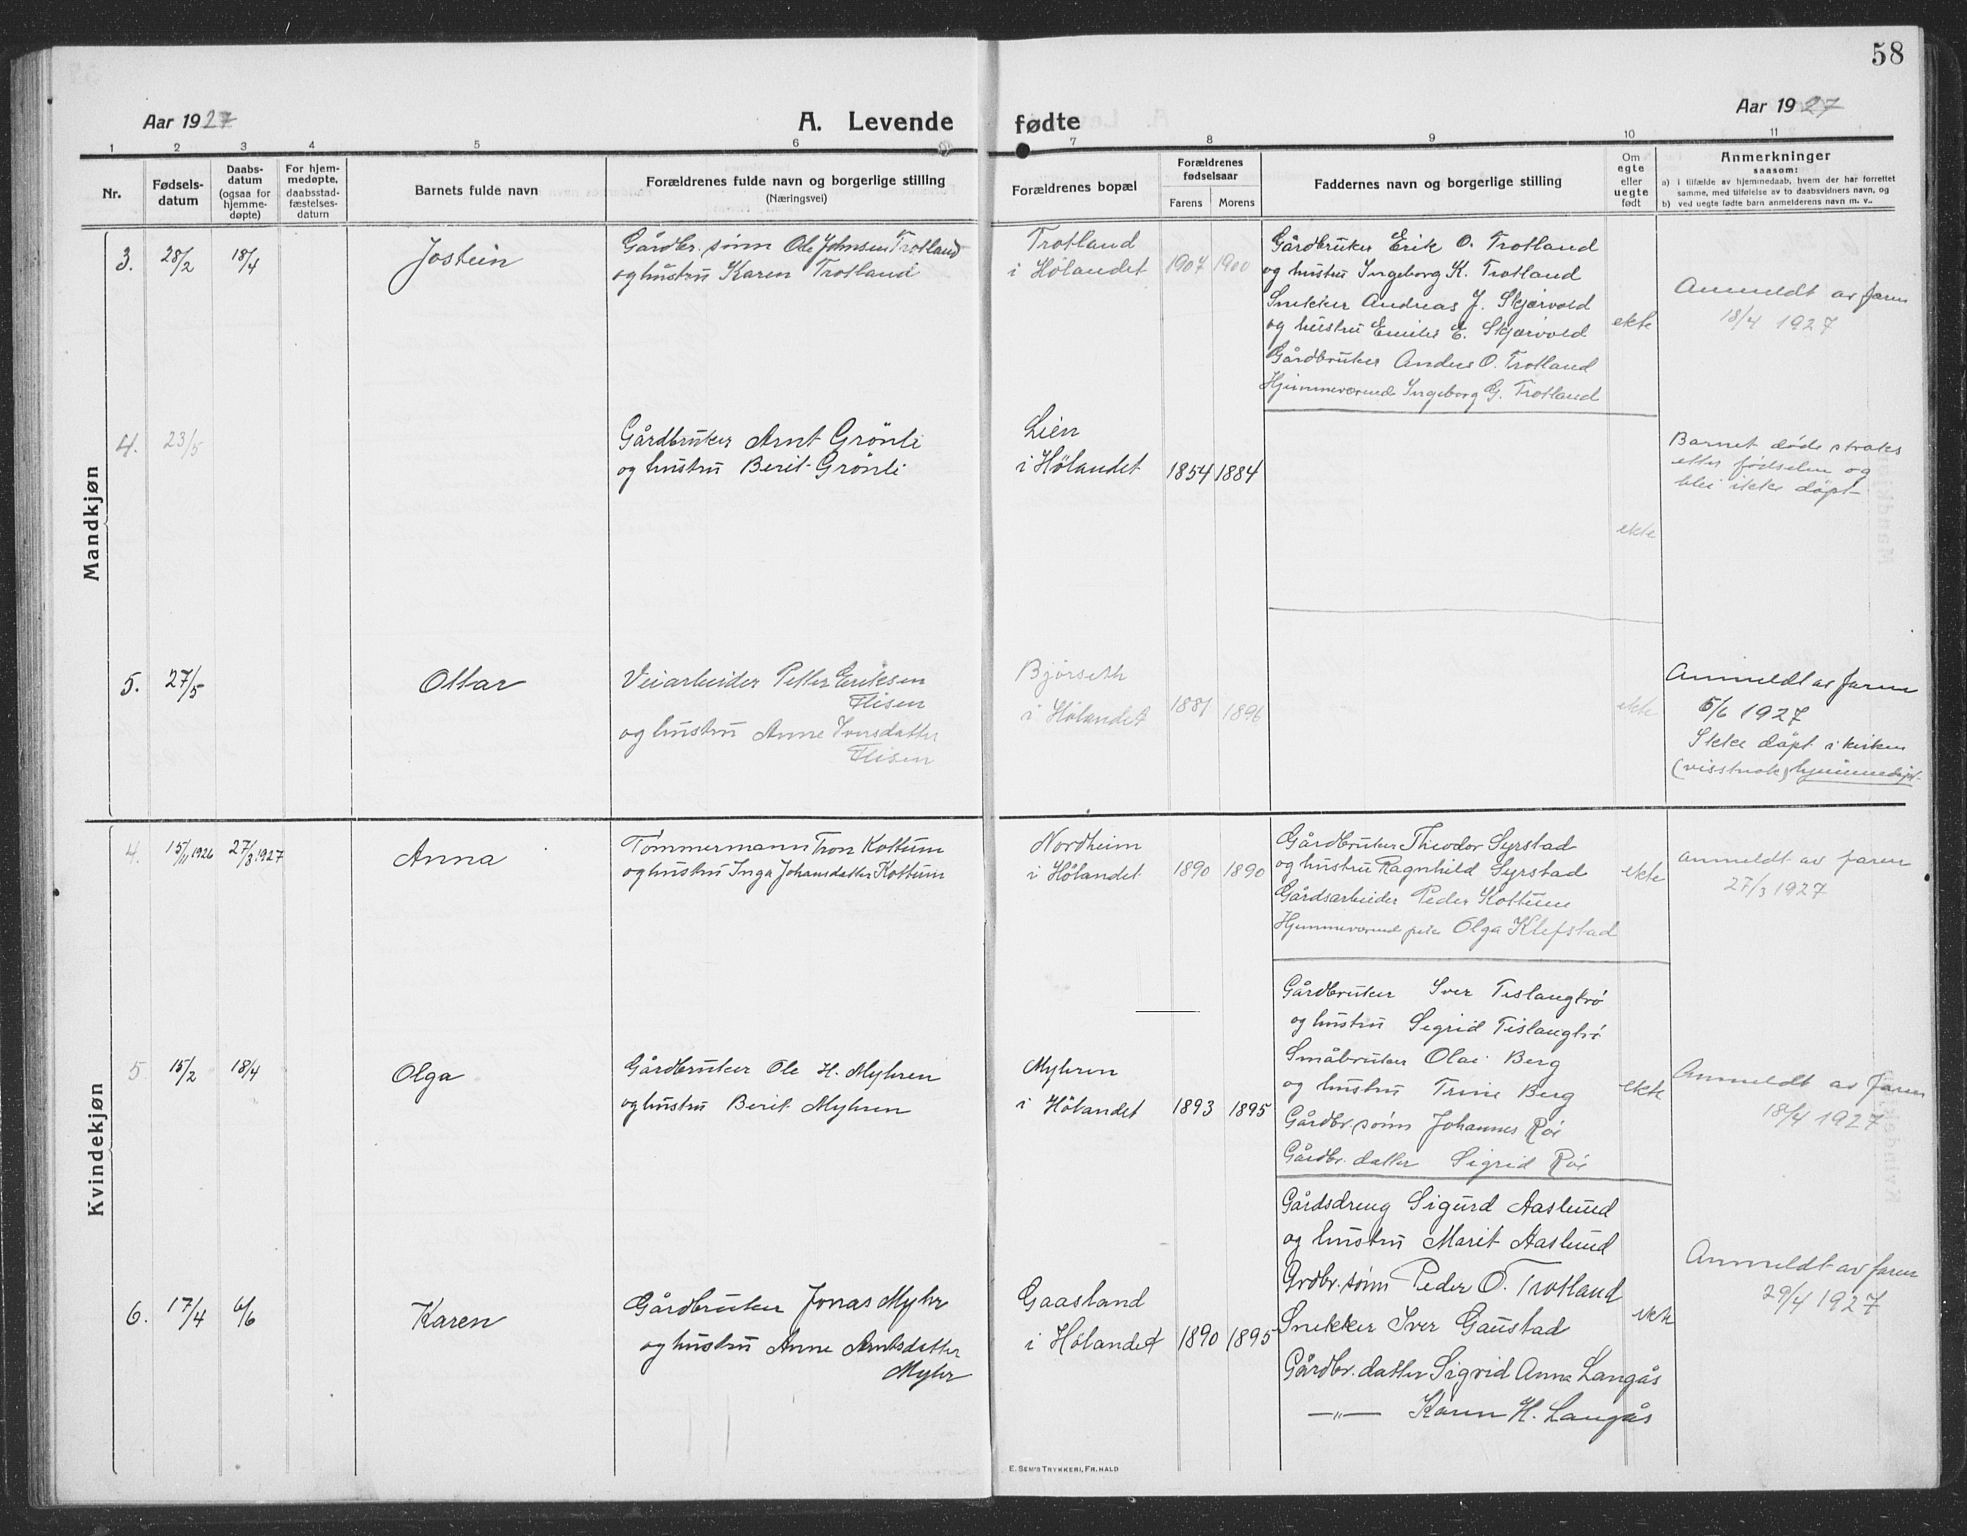 58
Aar 1927
A. Levende
fødte
Aar 1927
1 2 3 4 5 6 7 8 9 10 11
Nr.
Fødsels-
datum
Daabs-
datum
(ogsaa for
hjemme-
døpte)
For hjem-
medøpte,
daabsstad-
fæstelses-
datum
Barnets fulde navn
Forældrenes fulde navn og borgerlige stilling
(Næringsvei)
Forældrenes bopæl
Forældrenes
fødselsaar
Farens Morens
Faddernes navn og borgerlige stilling
Om
egte
eller
uegte
født
Anmerkninger
saasom:
a) i tilfælde av hjemmedaab, hvem der har forrettet
samme, med tilføielse av to daabsvidners navn, og
b) ved uegte fødte barn anmelderens navn m. v..
Mandkjøn
3. 28/2 18/4 Jostein
Gårdbr. sønn Ole Johnsen Trotland
og hustru Karen Trotland
Trotland
i Hølandet
1907 1900
Gårdbruker Erik O. Trotland
og hustru Ingeborg K. Trotland
Snekker Andreas J. Skjærvold
og hustru Emilie E. Skjærvold
Gårdbruker Anders O. Trotland
Hjemmeværende Ingeborg G. Trotland
ekte
Anmeldt av faren
18/4 1927
4. 23/5
Gårdbruker Arnt Grønli
og hustru Berit Grønli
Lien
i Hølandet
1854 1884
ekte
Barnet døde straks
etter fødselen og
blei ikke døpt
5. 27/5 Ottar
Veiarbeider Petter Eriksen
Flisen
og hustru Anne Iversdatter
Flisen
Bjørseth
i Hølandet
1881 1896
ekte
Anmeldt av faren
5/6 1927
Ikke døpt i kirken
(visstnok hjemmedøpt
Kvindekjøn
4. 15/11 1926 27/3 1927 Anna
Tømmermann Tron Kottum
og hustru Inga Johansdatter Kottum
Nordheim
i Hølandet
1890 1890
Gårdbruker Theodor Syrstad
og hustru Ragnhild Syrstad
Gårdsarbeider Peder Kottum
Hjemmeværende pike Olga Klefstad
ekte
Anmeldt av faren
27/3 1927
5 15/2 18/4 Olga
Gårdbruker Ole H. Myhren
og hustru Berit Myhren
Myhren
i Hølandet
1893 1895
Gårdbruker Iver Tislaugtrø
og hustru Sigrid Tislaugtrø
Småbruker Olai Berg
og hustru Trine Berg
Gårdbr. sønn Johannes Røe
Gårdbr. datter Sigrid Røe
ekte
Anmeldt av faren
18/4 1927
6. 17/4 6/6 Karen
Gårdbruker Jonas Myhr
og hustru Anne Arntsdatter
Myhr
Gaasland
i Hølandet
1890 1895
Gårdsdreng Sigurd Aaslund
og hustru Marit Aaslund
Grdbr. sønn Peder O. Trotland
Snekker Iver Gaustad
Gårdbr. datter Sigrid Anna Langås
—"— Karen H. Langås
ekte
Anmeldt av faren
29/4 1927
E. SEM'S TRYKKERI, FR.HALD